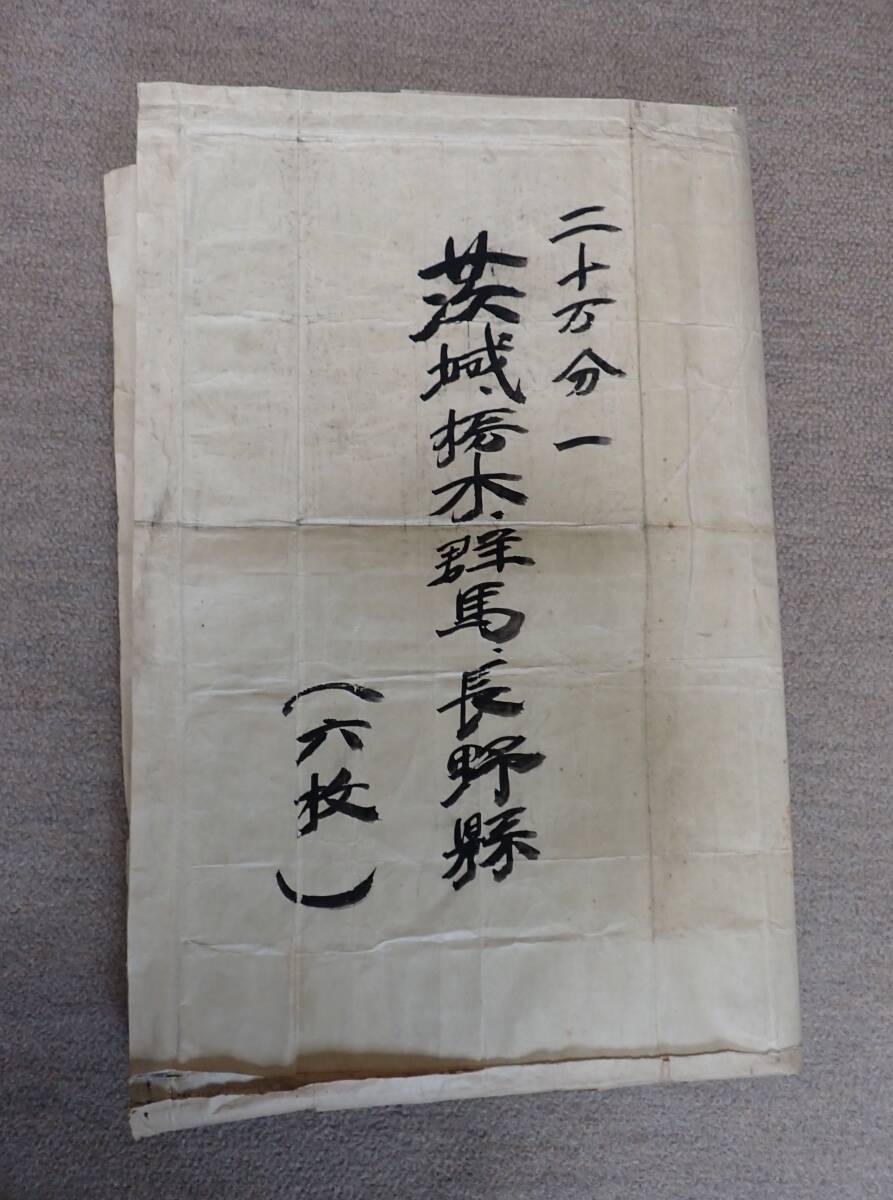 二十万分一
茨城、栃木、群馬、長野縣
（六枚）